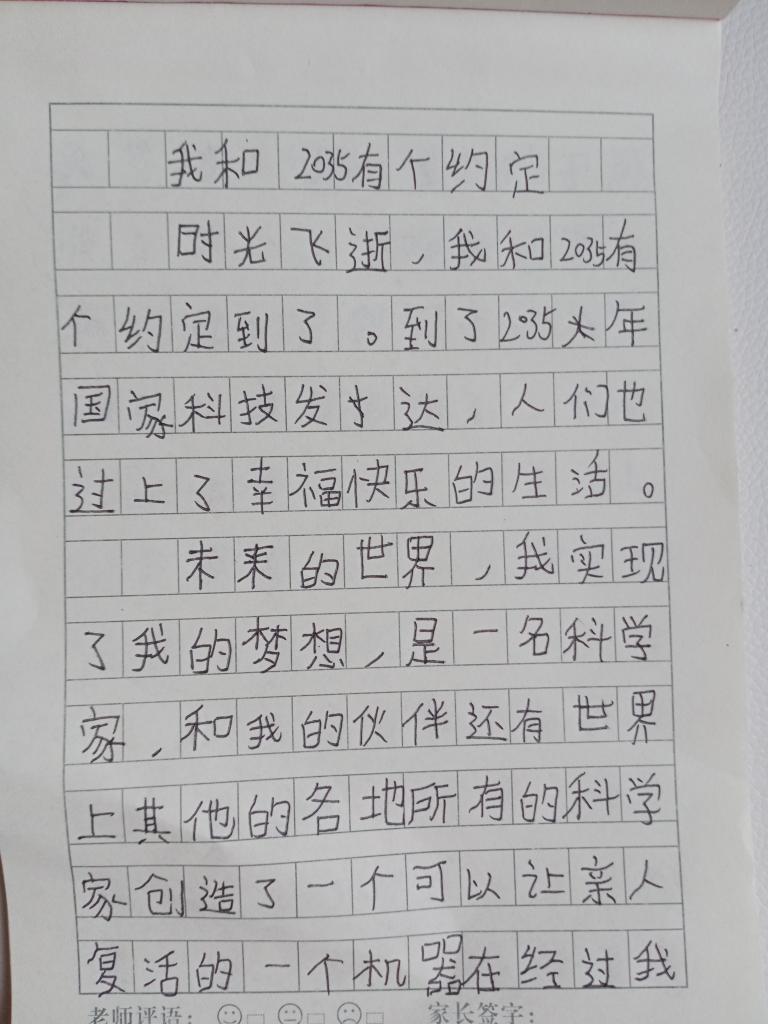 我和2035有个约定
时光飞逝，我和2035有
个约定到了。到了2035年
国家科技发达，人们也
过上了幸福快乐的生活。
未来的世界，我实现
了我的梦想，是一名科学
家，和我的伙伴还有世界
上其他的各地所有的科学
家创造了一个可以让亲人
复活的一个机器在经过我
老师评语： 家长签字：